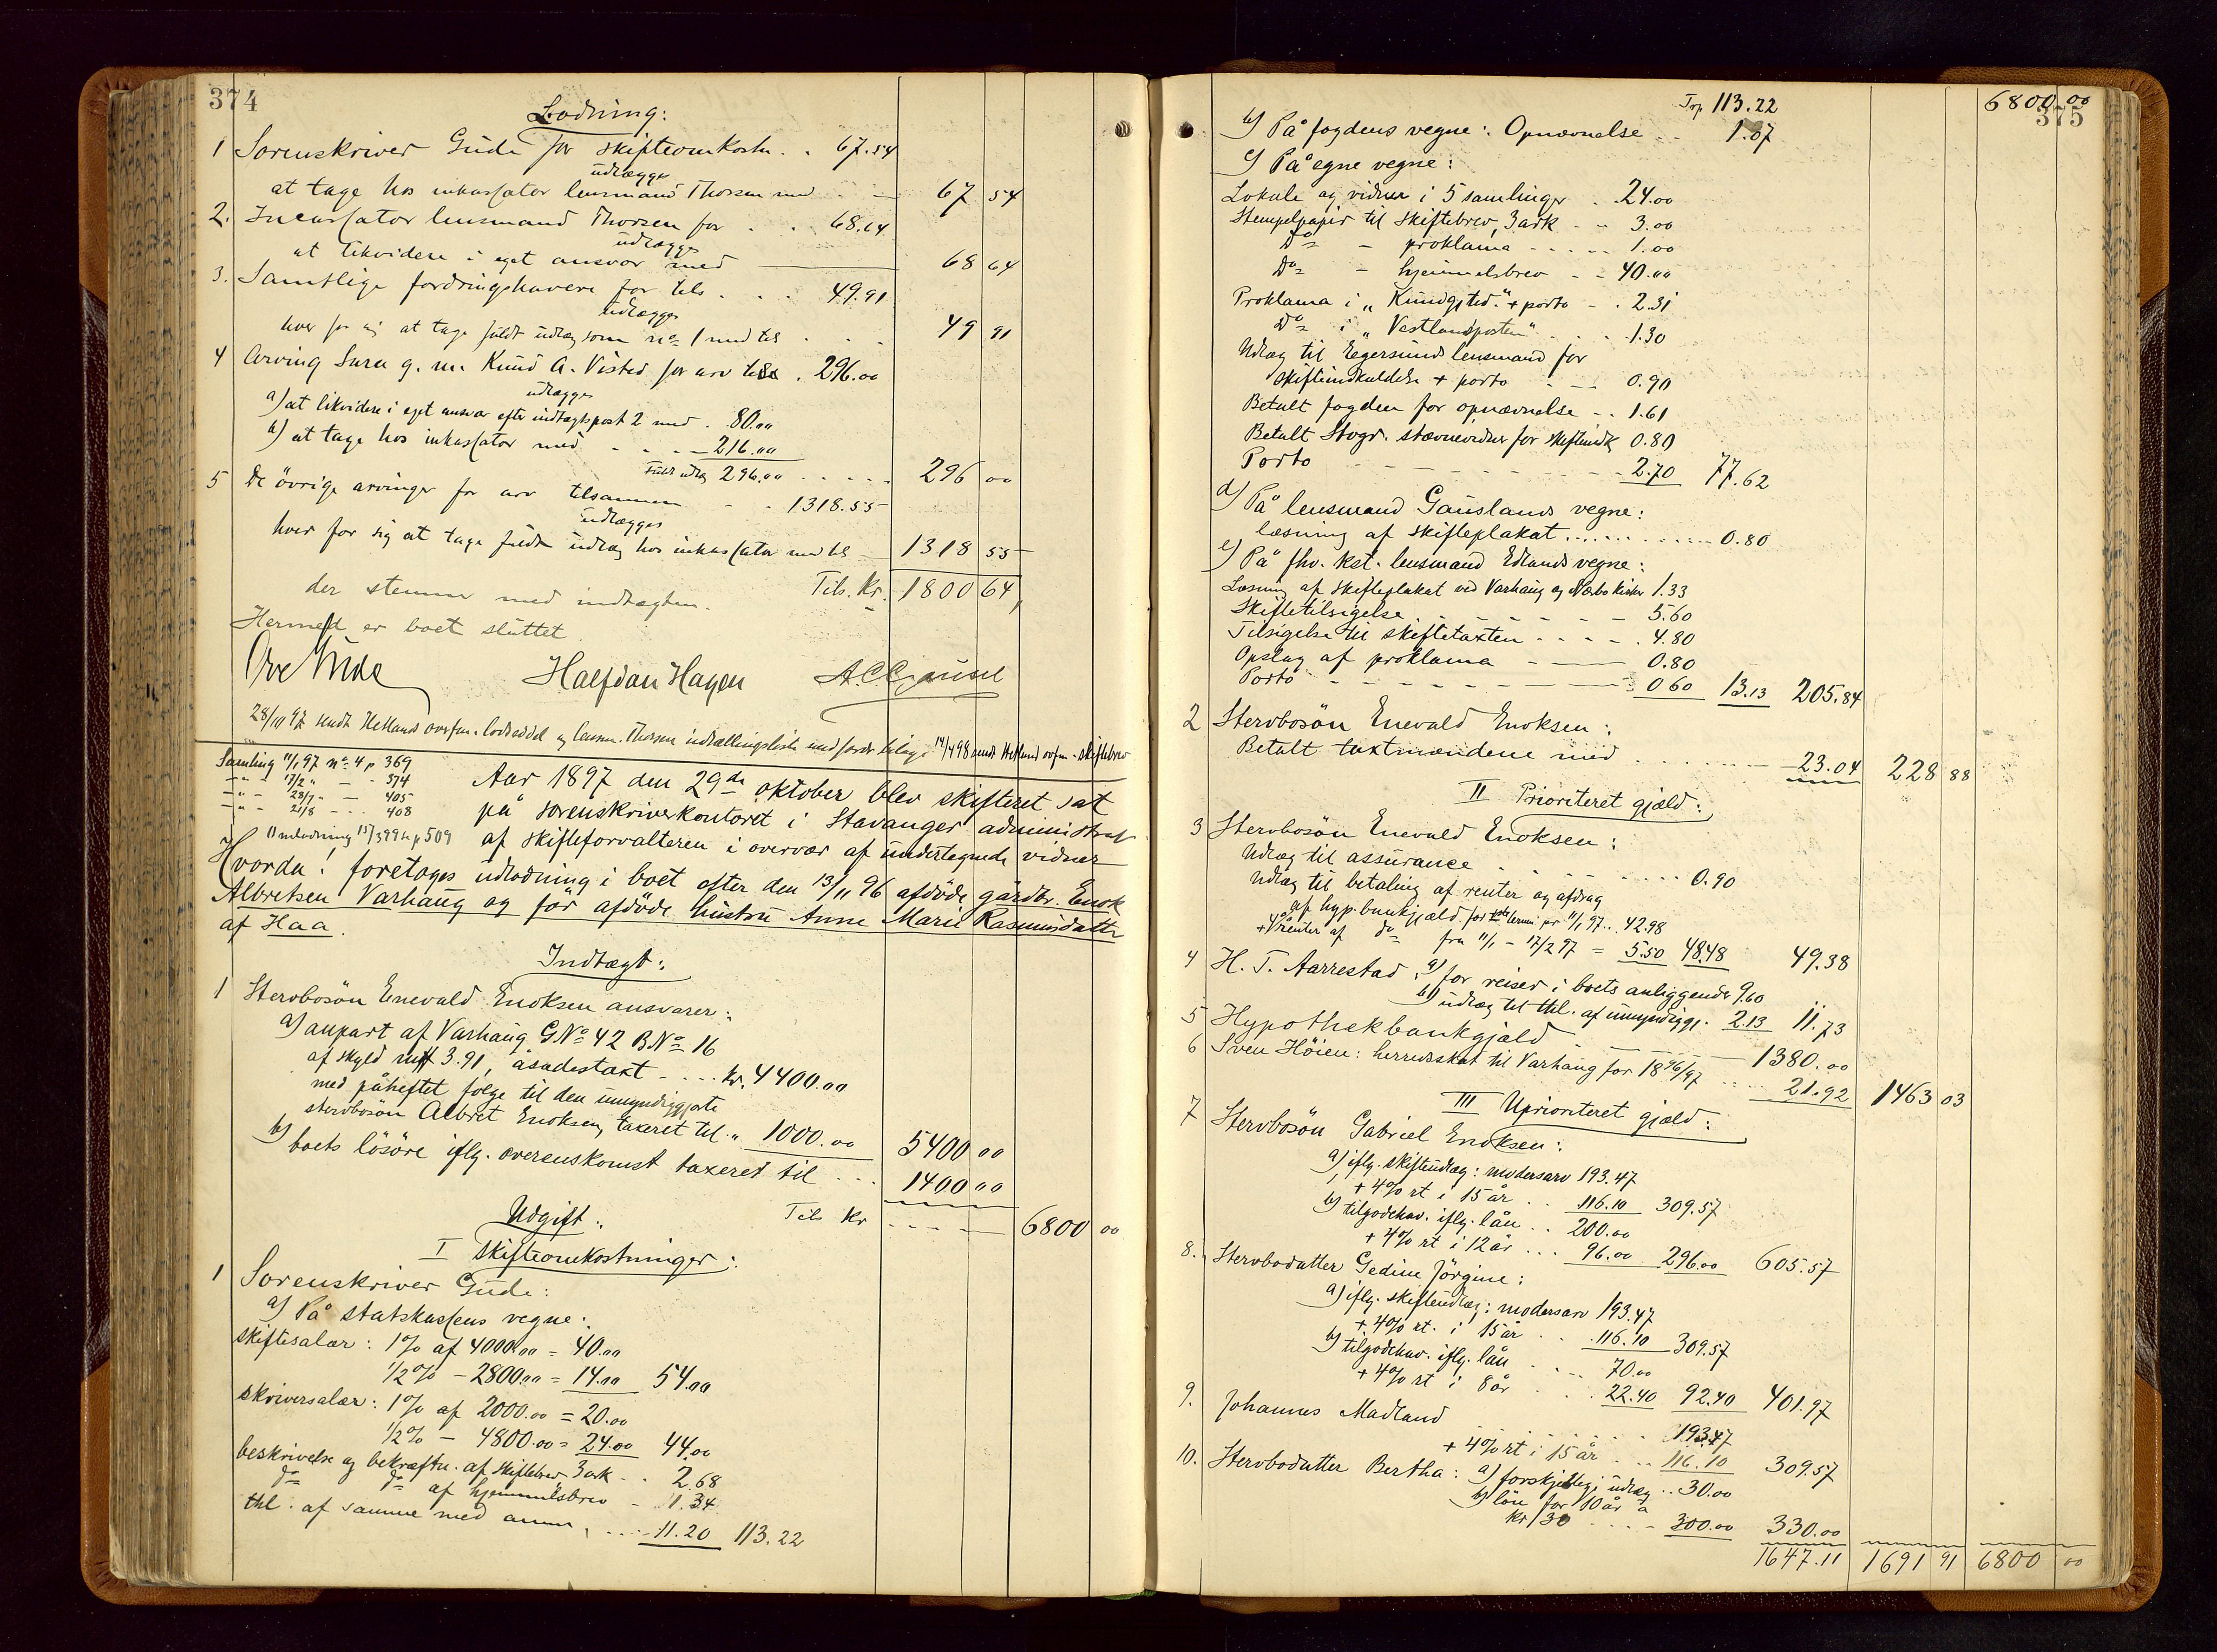 374
Lodning:
1 Sorenskriver Gude for skifteomkostn. . 67.54
udlægges
at tage hos inkassator lensmand Thorsen med - 67 54
2. Incassator lensmand Thorsen for . . 68.64
udlægges
at likvidere i eget ansvar med 68 64
3. Samtlige fordringshavere for tils. . . 49.91
udlægges
hver for sig at tage fuldt udlæg som no 1 med tils . . . 49 91
4 Arving Sara g. m. Knud A. Visted for arv tils . 296.00
udlægges
a) at likvidere i eget ansvar efter indtægtspost 2 med . 80.00
b) at tage hos inkassator med - - - 216.00
Fuldt udlæg 296.00 . . . . . 296 00
5 De övrige arvinger for arv tilsammen - - 1318.55
udlægges
hver for sig at tage fuldt udlæg hos inkassator med tils - 1318 55
Tils. Kr. 1800 64
der stemmer med indtægten.
Hermed er boet sluttet.
Ove Gude Halfdan Hagen
28/10 97 sendt Hetland overfm. lodseddel og lensm. Thorsen indtællingsliste med fordr. bilage 14/4 98 sendt Hetland ovfm. skiftebrev
Samling 11/1 97 no 4 p 369
-"- - 17/2 " - - 374
-"- - 28/7 - - 405
-"- - 21/8 - - 408
Omlodning 15/3 99 p 509
Aar 1897 den 29de oktober blev skifteret sat
på sorenskriverkontoret i Stavanger administreret
af skifteforvalteren i overvær af undertegnede vidner
Hvorda: foretoges udlodning i boet efter den 13/11 96 afdöde gårdbr. Enok
Albretsen Varhaug og før afdöde hustru Anne Marie Rasmusdatter
af Haa.
Indtægt:
1 Stervbosön Enevald Enoksen ansvarer:
a) anpart af Varhaug G.No 42 B.No 16
af skyld mk 3.91, åsædestaxt - . . . kr. 4400.00
med påheftet folge til den umyndiggjorte
stervbosön Albret Enoksen, taxeret til " 1000.00 5400 00
b) boets lösöre iflg. overenskomst taxeret til . . . 1400 00
Tils Kr - - - - 6800 00
Udgift:
I Skifteomkostninger:
1 Sorenskriver Gude:
a) På statskassens vegne:
skiftesalær: 1% af 4000.00 = 40.00
1/2% - 2800.00 = 14.00 54.00
skriversalær: 1% af 2000.00 = 20.00
1/2% - 4800.00 = 24.00 44.00
beskrivelse og bekræftn. af skiftebrev 3 ark - . 2.68
do do af hjemmelsbrev - 1.34
thl. af samme med anm. . . . . 11.20 113.22
375
Trp 113.22 6800 00
b) På fogdens vegne: Opnævnelse . . 1.07
c) På egne vegne:
Lokale og vidner i 5 samlinger . . 24.00
Stempelpapir til skiftebrev, 3 ark - - 3.00
Do - proklama - - - - - 1.00
Do - hjemmelsbrev - - 40.00
Proklama i "Kundg.tid." + porto - . 2.31
Do i "Vestlandsposten" . . . 1.30
Udlæg til Egersunds lensmand for
skifteindkaldelse + porto - - - 0.90
Betalt fogden for opnævnelse - . 1.61
Betalt Stvgr. stævnevidner for skifteindk 0.80
Porto - - - - - - - - - 2.70 77.62
d) På lensmand Gauslands vegne:
læsning af skifteplakat . . . . . . . . . . . . 0.80
e) På fhv. kst. lensmand Edlands vegne:
Læsning af skifteplakat ved Varhaug og Nærbo kirker 1.33
Skiftetilsigelse . - - - - - - - 5.60
Tilsigelse til skiftetaxten - - - - . 4.80
Opslag af proklama - - 0.80
Porto - - - - - - 0.60 13.13 205.84
2 Stervbosön Enevald Enoksen:
Betalt taxtmændene med . . . . . . 23.04 228 88
II Prioriteret gjæld:
3 Stervbosön Enevald Enoksen:
Udlæg til assurance . . . . . . . . 0.90
Udlæg til betaling af renter og afdrag
af hyp. bankgjæld for termin pr 11/1 97 . . 42.98
+ 4% renter af do fra 11/1 - 17/2 97 = 5.50 48.48 49.38
4 H. T. Aarrestad: a) for reiser i boets anliggende 9.60
b) udlæg til thl. af umyndiggj. 2.13 11.73
5 Hypothekbankgjæld - - - - 1380.00
6 Sven Höien: herredsskat til Varhaug for 1896/97 . . . . 21.92 1463 03
III Uprioriteret gjæld:
7 Stervbosön Gabriel Enoksen:
a) iflg. skifteudlæg: modersarv 193.47
+ 4% rt i 15 år . . 116.10 309.57
b) tilgodehav. iflg. lån . . 200.00
+ 4% rt i 12 år . . . 96.00 296.00 605.57
8. Stervbodatter Gedine Jörgine:
a) iflg. skifteudlæg: modersarv 193.47
+ 4% rt. i 15 år . . . 116.10 309.57
b) tilgodehav. iflg. lån . . - - 70.00
+ 4% rt i 8 år . . . 22.40 92.40 401.97
9. Johannes Madland . . . . . . . 193.47
+ 4% rt i 15 år . . . 116.10 309.57
10. Stervbodatter Bertha: a) forskjellig udlæg . . 30.00
b) lön for 10 år à
kr 30 . . . - 300.00 330.00
1647.11 1691 91 6800 00